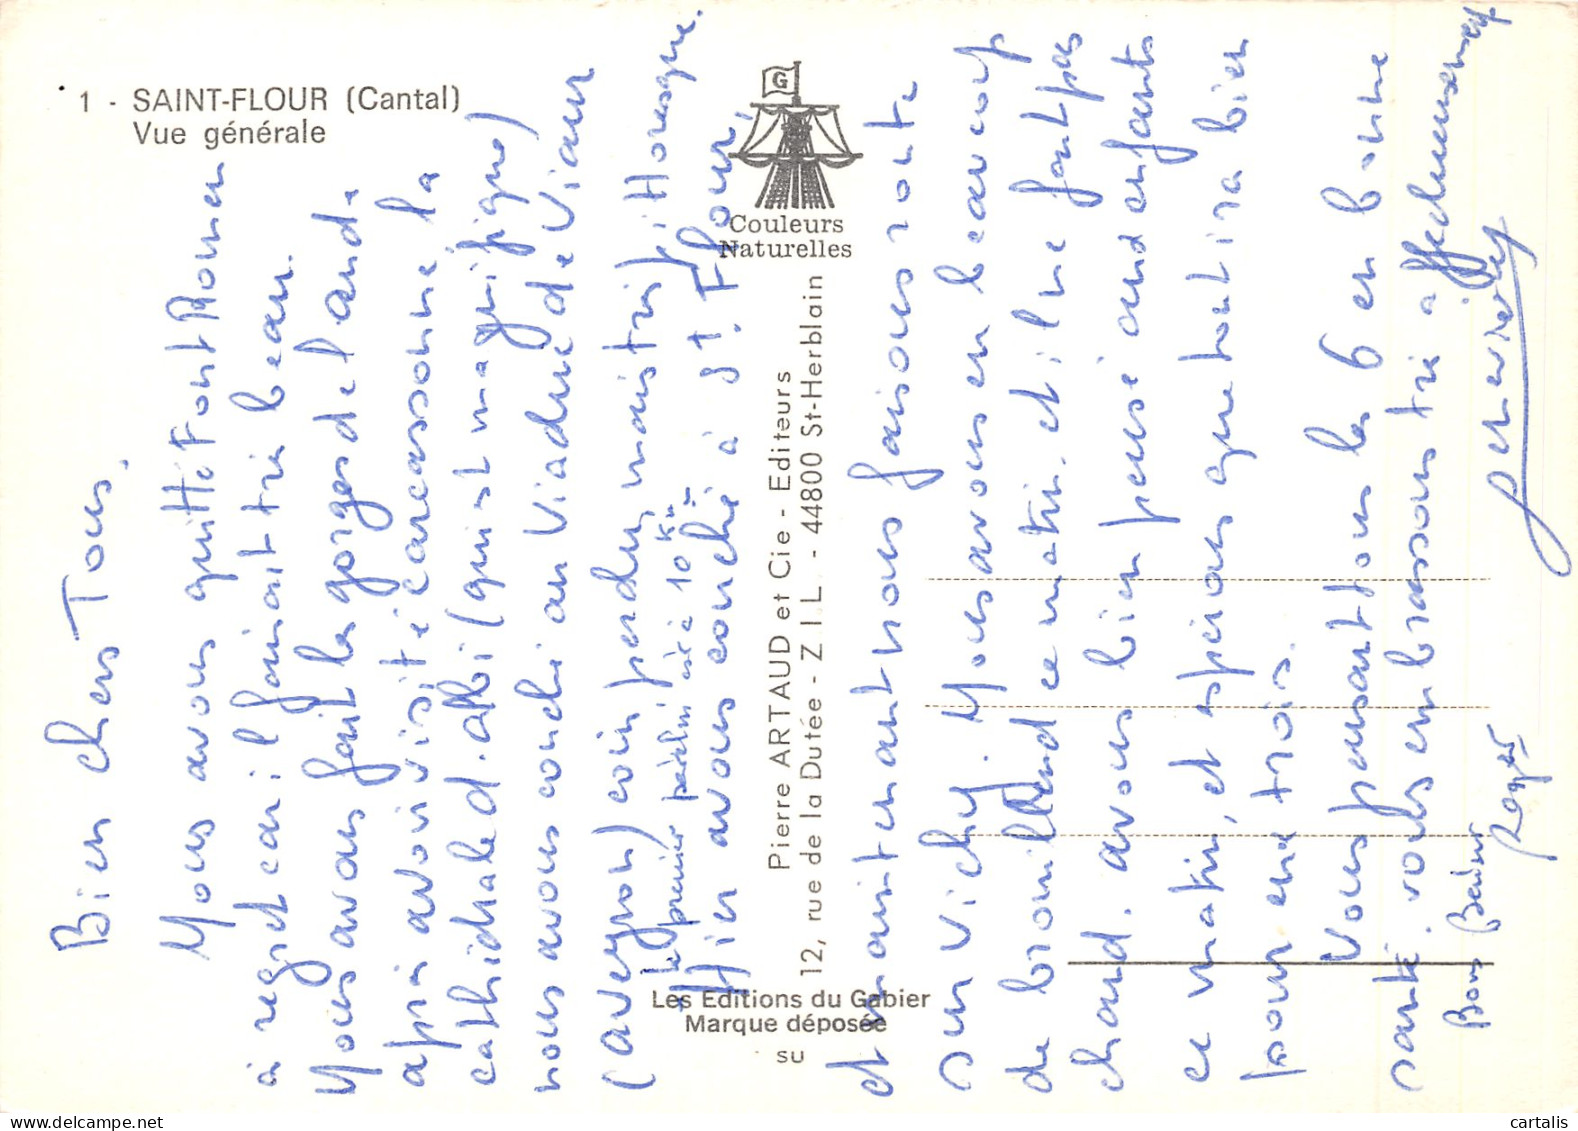 1 - SAINT-FLOUR (Cantal)
Vue générale
G
Couleurs
Naturelles
Pierre ARTAUD et Cie - Editeurs
12, rue de la Dutée - Z.I.L. - 44800 St-Herblain
Les Editions du Gabier
Marque déposée
SU
Bien chers Tous.
Nous avons quitté Font Romeu
à regret car il faisait très beau.
Nous avons fait les gorges de l'aude
après avoir visité Carcassonne, la
cathédrale d'albi (qui est magnifique)
nous avons couché au Viaduc de Viaur
(aveyron) coin perdu, mais très pittoresque.
le premier patelin est à 10 Km
Hier avons couché à St. Flour,
et maintenant nous faisons route
sur Vichy. Nous avons eu beaucoup
de brouillard ce matin. et il ne fait pas
chaud. avons bien pensé aux enfants
ce matin, et espérons que tout ira bien
pour eux trois.
Vous pensant tous les 6 en bonne
santé. vous embrassons très affectueusement
Bons Baisers
Roger
cartalis